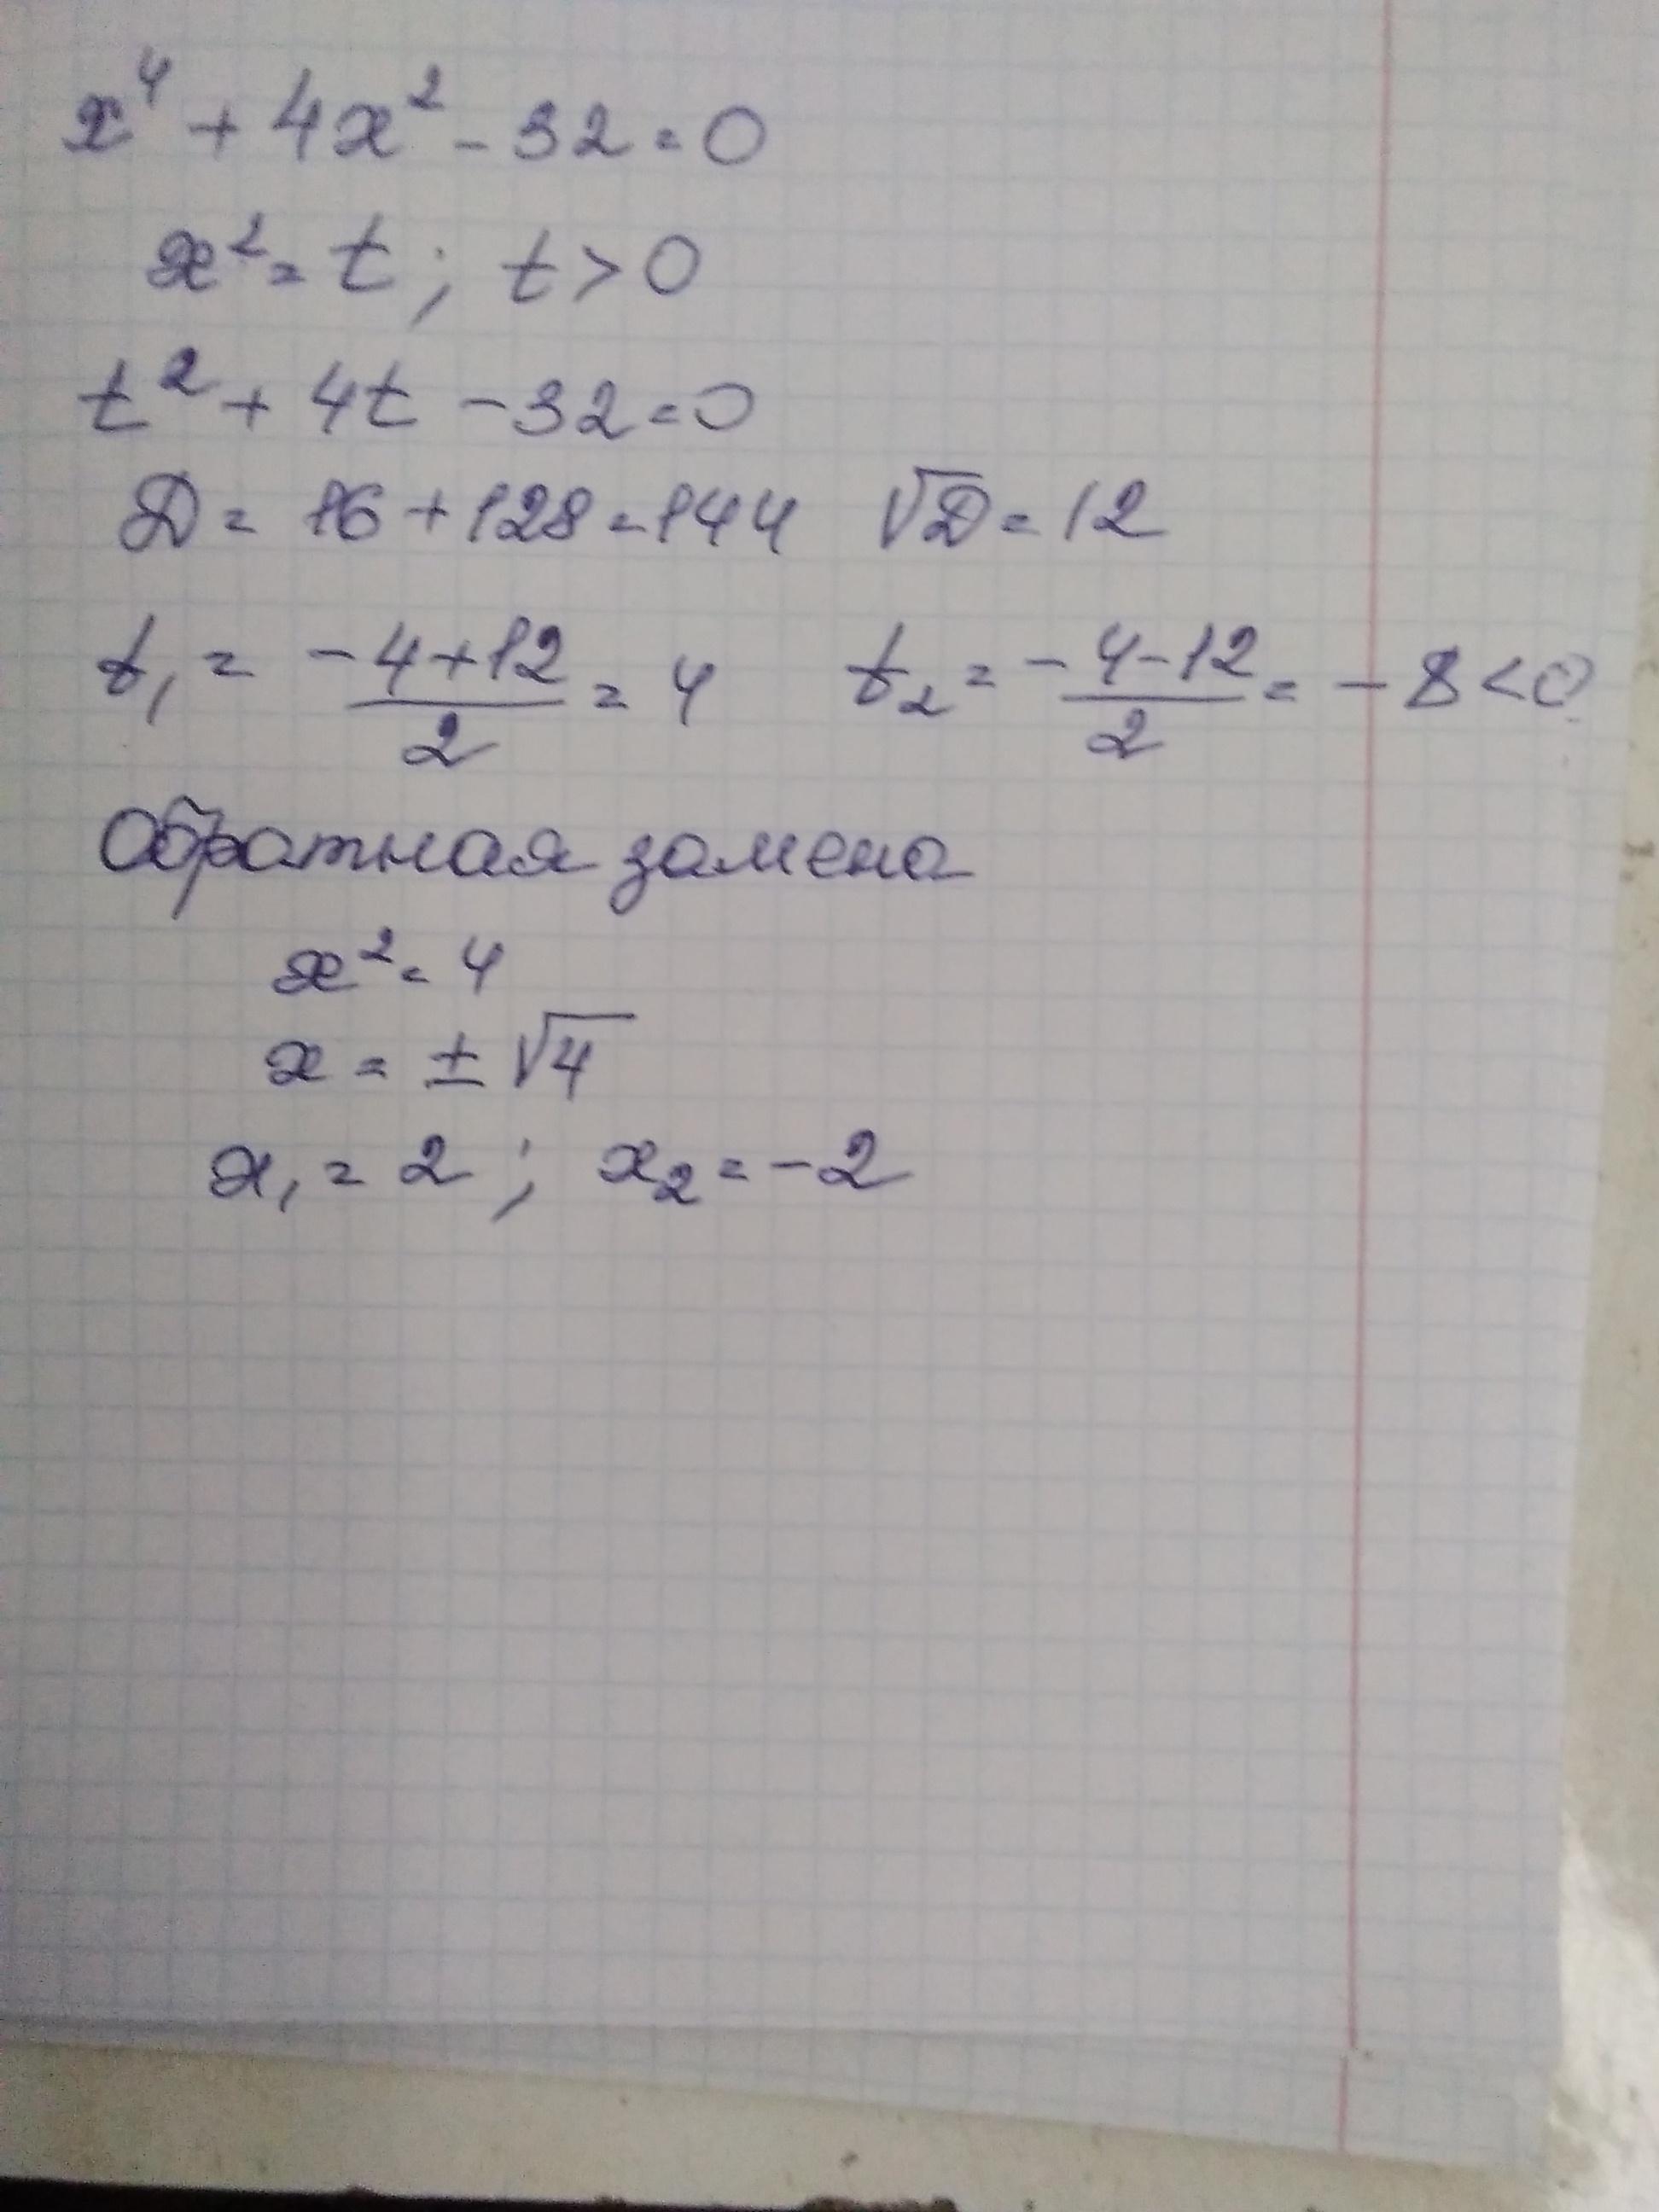 x⁴ + 4x² - 32 = 0
x² = t ; t > 0
t² + 4t - 32 = 0
D = 16 + 128 = 144 √D = 12
t₁ = (-4+12)/2 = 4 t₂ = (-4-12)/2 = -8 < 0
Обратная замена
x² = 4
x = ± √4
x₁ = 2 ; x₂ = -2